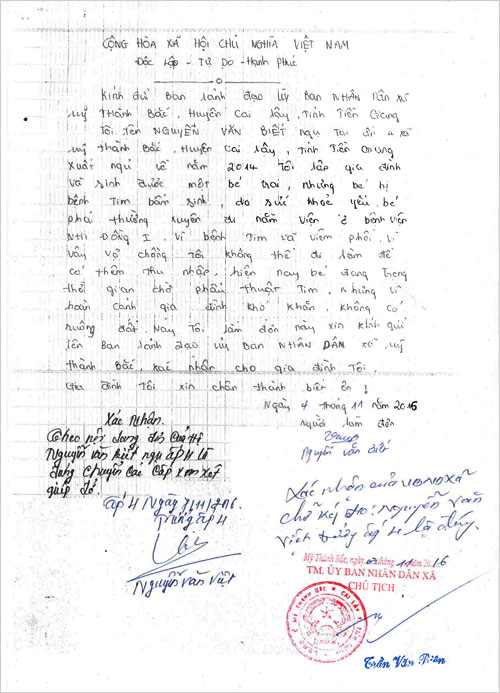 CỘNG HÒA XÃ HỘI CHỦ NGHĨA VIỆT NAM
Độc Lập - Tự Do - Hạnh Phúc
Kính gửi Ban lãnh đạo Uỷ Ban NHÂN Dân xã
Mỹ Thành Bắc, Huyện Cai Lậy, Tỉnh Tiền Giang
Tôi Tên NGUYỄN VĂN BIẾT ngụ Tại ấp 4 xã
Mỹ Thành Bắc, Huyện Cai Lậy, Tỉnh Tiền Giang
Xuất ngũ về năm 2014 Tôi lập gia đình
và sinh được một bé trai, nhưng bé bị
bệnh Tim bẩm sinh, do sức khoẻ yếu bé
phải thường xuyên đi nằm viện ở bệnh viện
NHI ĐỒNG I vì bệnh Tim và viêm phổi. Vì
vậy vợ chồng tôi không thể đi làm để
có thêm thu nhập, hiện nay bé đang trong
thời gian chờ phẫu thuật Tim, nhưng vì
hoàn cảnh gia đình khó khăn, không có
ruộng đất. Nay Tôi làm đơn này xin kính gửi
lên Ban lãnh đạo uỷ Ban NHÂN DÂN xã Mỹ
Thành Bắc, xác nhận cho gia đình Tôi.
Gia đình Tôi xin chân thành biết ơn !
Ngày 4 tháng 11 năm 2016
người làm đơn
Nguyễn văn biết
Xác Nhận.
Theo nội dung đơn của Hộ
Nguyễn văn biết ngụ ấp 4 là
đúng chuyển các cấp xem xét
giúp đỡ.
ấp 4 Ngày 7/11/2016
Trưởng ấp 4
Nguyễn Văn Việt
Xác nhận của UBND xã
Chữ ký : Nguyễn Văn
Việt trưởng ấp 4 là đúng.
Mỹ Thành Bắc, ngày 07 tháng 11 năm 2016
TM. ỦY BAN NHÂN DÂN XÃ
CHỦ TỊCH
Trần Văn